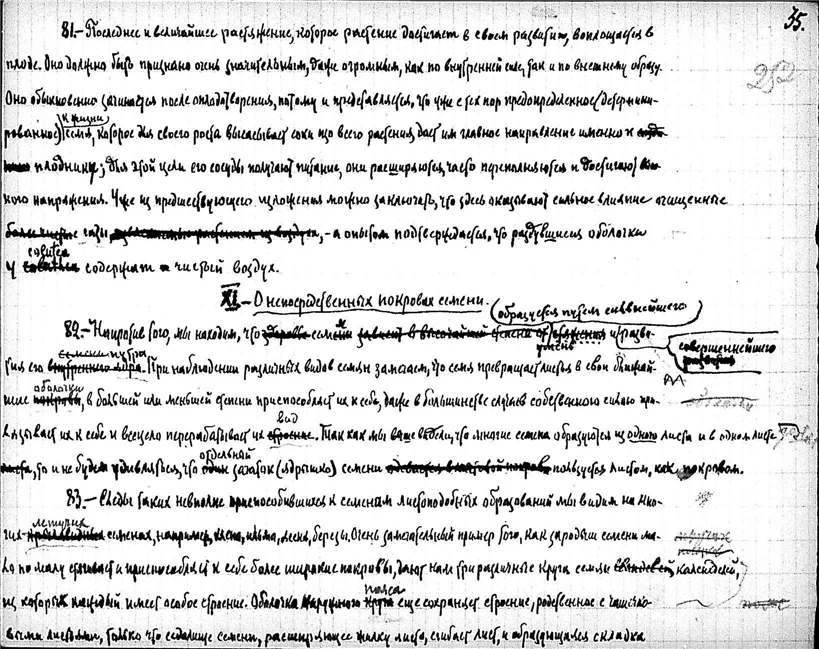 35.
252
81.– Последнее и величайшее растяжение, которое растение достигает в своем развитии, воплощается в
плоде. Оно должно быть признано очень значительным, даже огромным, как по внутренней силе, так и по внешнему образу.
Оно обыкновенно зачинается после оплодотворения, потому и представляется, что уже с тех пор предопределенное (детермини-
к жизни
рованное) семя, которое для своего роста высасывает соки из всего растения, дает им главное направление именно к
плоднику; для этой цели его сосуды получают питание, они расширяются, часто переполняются и достигают
кого напряжения. Уже из предшествующего изложения можно заключать, что здесь оказывают сильное влияние очищенные
газы, – а опытом подтверждается, что раздувшиеся оболочки
colutea
у содержат чистый воздух.
XI.– О непосредственных покровах семени.
(образуется путем сильнейшего
82.– Напротив того, мы находим, что семя степени и разви-
совершеннейшего
тия его При наблюдении различных видов семян замечаем, что семя превращает листья в свои ближай-
оболочки
шие, в большей или меньшей степени приспособляет их к себе, даже в большинстве случаев собственною силою при-
вид
вязывает их к себе и всецело перерабатывает их Так как мы выше видели, что многие семена образуются из одного листа и в одном листе
отдельный
то и не будем удивляться, что зачаток (ядрышко) семени пользуется листом, как покровом.
83.– Следы таких невполне приспособившихся к семенам листоподобных образований мы видим на мно-
летучих
гих семенах, например, клена, ильма, ясеня, березы. Очень замечательный пример того, как зародыш семени ма-
ло по малу стягивает и приспособляет к себе более широкие покровы, дают нам три различные круга семян календулы,
пояса
из которых каждый имеет особое строение. Оболочка еще сохраняет строение, родственное с чашечко-
выми листьями, только что седалище семени, расширяющее жилку листа, сгибает лист, и образующаяся складка